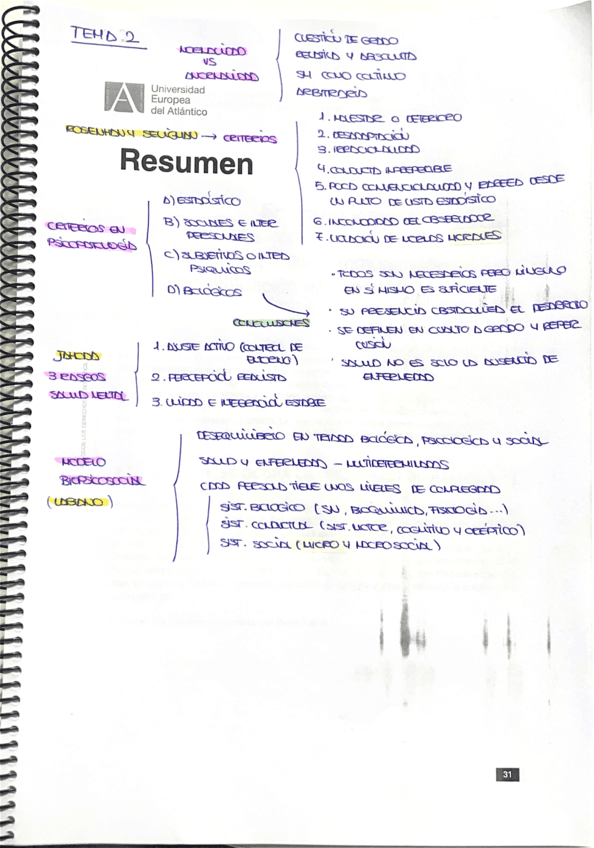 TEMA 2
NORMALIDAD
VS
ANORMALIDAD
CUESTIÓN DE GRADO
RELATIVA Y ABSOLUTA
SM COMO CONTINUO
ARBITRARIA
Universidad
Europea
del Atlántico
ROSENHAN Y SELIGMAN → CRITERIOS
1. MALESTAR O DETERIORO
2. DESADAPTACIÓN
3. IRRACIONALIDAD
4. CONDUCTA IMPREDECIBLE
5. POCA CONVENCIONALIDAD Y RAREZA DESDE
UN PUNTO DE VISTA ESTADÍSTICO
6. INCOMODIDAD DEL OBSERVADOR
7. VIOLACIÓN DE NORMAS MORALES
Resumen
CRITERIOS EN
PSICOPATOLOGÍA
A) ESTADÍSTICO
B) SOCIALES E INTER
PERSONALES
C) SUBJETIVOS O INTRA
PSIQUICOS
D) BIOLÓGICOS
CONCLUSIONES
· TODOS SON NECESARIOS PERO NINGUNO
EN SÍ MISMO ES SUFICIENTE
· SU PRESENCIA OBSTACULIZA EL DESARROLLO
· SE DEFINEN EN CUANTO A GRADO Y REPER
CUSIÓN
· SALUD NO ES SOLO LA AUSENCIA DE
ENFERMEDAD
JAHODA
3 RASGOS
SALUD MENTAL
1. AJUSTE ACTIVO (CONTROL DE
ENTORNO)
2. PERCEPCIÓN REALISTA
3. UNIDAD E INTEGRACIÓN ESTABLE
MODELO
BIOPSICOSOCIAL
(LABIANO)
DESEQUILIBRIO EN TRIADA BIOLÓGICA, PSICOLOGICA Y SOCIAL
SALUD Y ENFERMEDAD - MULTIDETERMINADAS
CADA PERSONA TIENE UNOS NIVELES DE COMPLEJIDAD
SIST. BIOLOGICO (SN, BIOQUÍMICA, FISIOLOGÍA...)
SIST. CONDUCTUAL (SIST. MOTOR, COGNITIVO Y AFECTIVO)
SIST. SOCIAL (MICRO Y MACROSOCIAL)
31